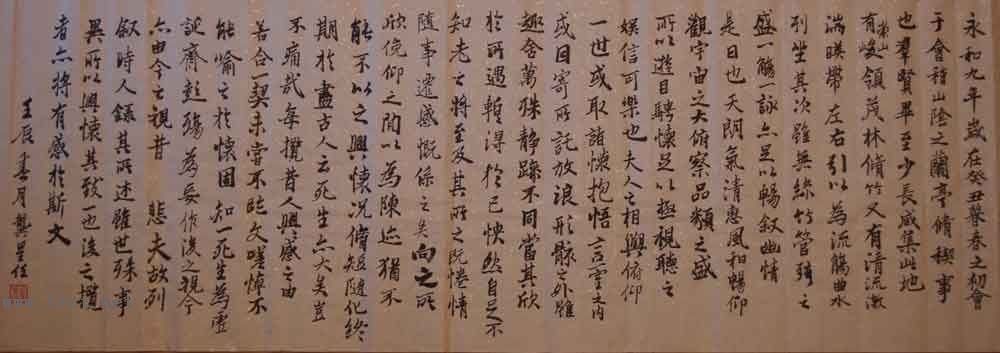 永和九年歲在癸丑暮春之初會
于會稽山陰之蘭亭脩稧事
也羣賢畢至少長咸集此地
有崇山峻領茂林脩竹又有清流激
湍暎帶左右引以為流觴曲水
列坐其次雖無絲竹管弦之
盛一觴一詠亦足以暢叙幽情
是日也天朗氣清惠風和暢仰
觀宇宙之大俯察品類之盛
所以遊目騁懷足以極視聽之
娛信可樂也夫人之相與俯仰
一世或取諸懷抱悟言一室之內
或因寄所託放浪形骸之外雖
趣舍萬殊靜躁不同當其欣
於所遇暫得於己怏然自足不
知老之將至及其所之既惓情
隨事遷感慨係之矣向之所
欣俛仰之間以為陳迹猶不
能不以之興懷況脩短隨化終
期於盡古人云死生亦大矣豈
不痛哉每攬昔人興感之由
若合一契未嘗不臨文嗟悼不
能喻之於懷固知一死生為虛
誕齊彭殤為妄作後之視今
亦由今之視昔 悲夫故列
叙時人錄其所述雖世殊事
異所以興懷其致一也後之攬
者亦將有感於斯文
壬辰春月龔